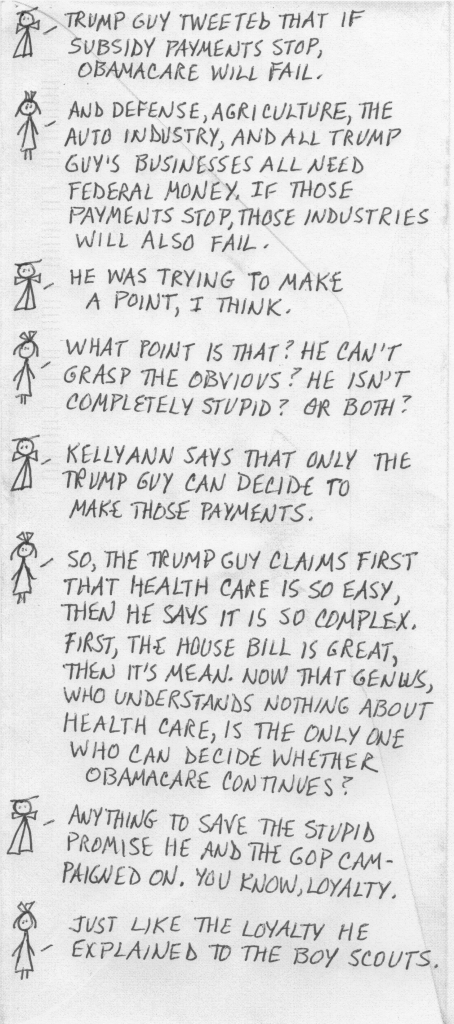 TRUMP GUY TWEETED THAT IF
SUBSIDY PAYMENTS STOP,
OBAMACARE WILL FAIL.
AND DEFENSE, AGRICULTURE, THE
AUTO INDUSTRY, AND ALL TRUMP
GUY'S BUSINESSES ALL NEED
FEDERAL MONEY. IF THOSE
PAYMENTS STOP, THOSE INDUSTRIES
WILL ALSO FAIL.
HE WAS TRYING TO MAKE
A POINT, I THINK.
WHAT POINT IS THAT? HE CAN'T
GRASP THE OBVIOUS? HE ISN'T
COMPLETELY STUPID? OR BOTH?
KELLYANN SAYS THAT ONLY THE
TRUMP GUY CAN DECIDE TO
MAKE THOSE PAYMENTS.
SO, THE TRUMP GUY CLAIMS FIRST
THAT HEALTH CARE IS SO EASY,
THEN HE SAYS IT IS SO COMPLEX.
FIRST, THE HOUSE BILL IS GREAT,
THEN IT'S MEAN. NOW THAT GENIUS,
WHO UNDERSTANDS NOTHING ABOUT
HEALTH CARE, IS THE ONLY ONE
WHO CAN DECIDE WHETHER
OBAMACARE CONTINUES?
ANYTHING TO SAVE THE STUPID
PROMISE HE AND THE GOP CAM-
PAIGNED ON. YOU KNOW, LOYALTY.
JUST LIKE THE LOYALTY HE
EXPLAINED TO THE BOY SCOUTS.